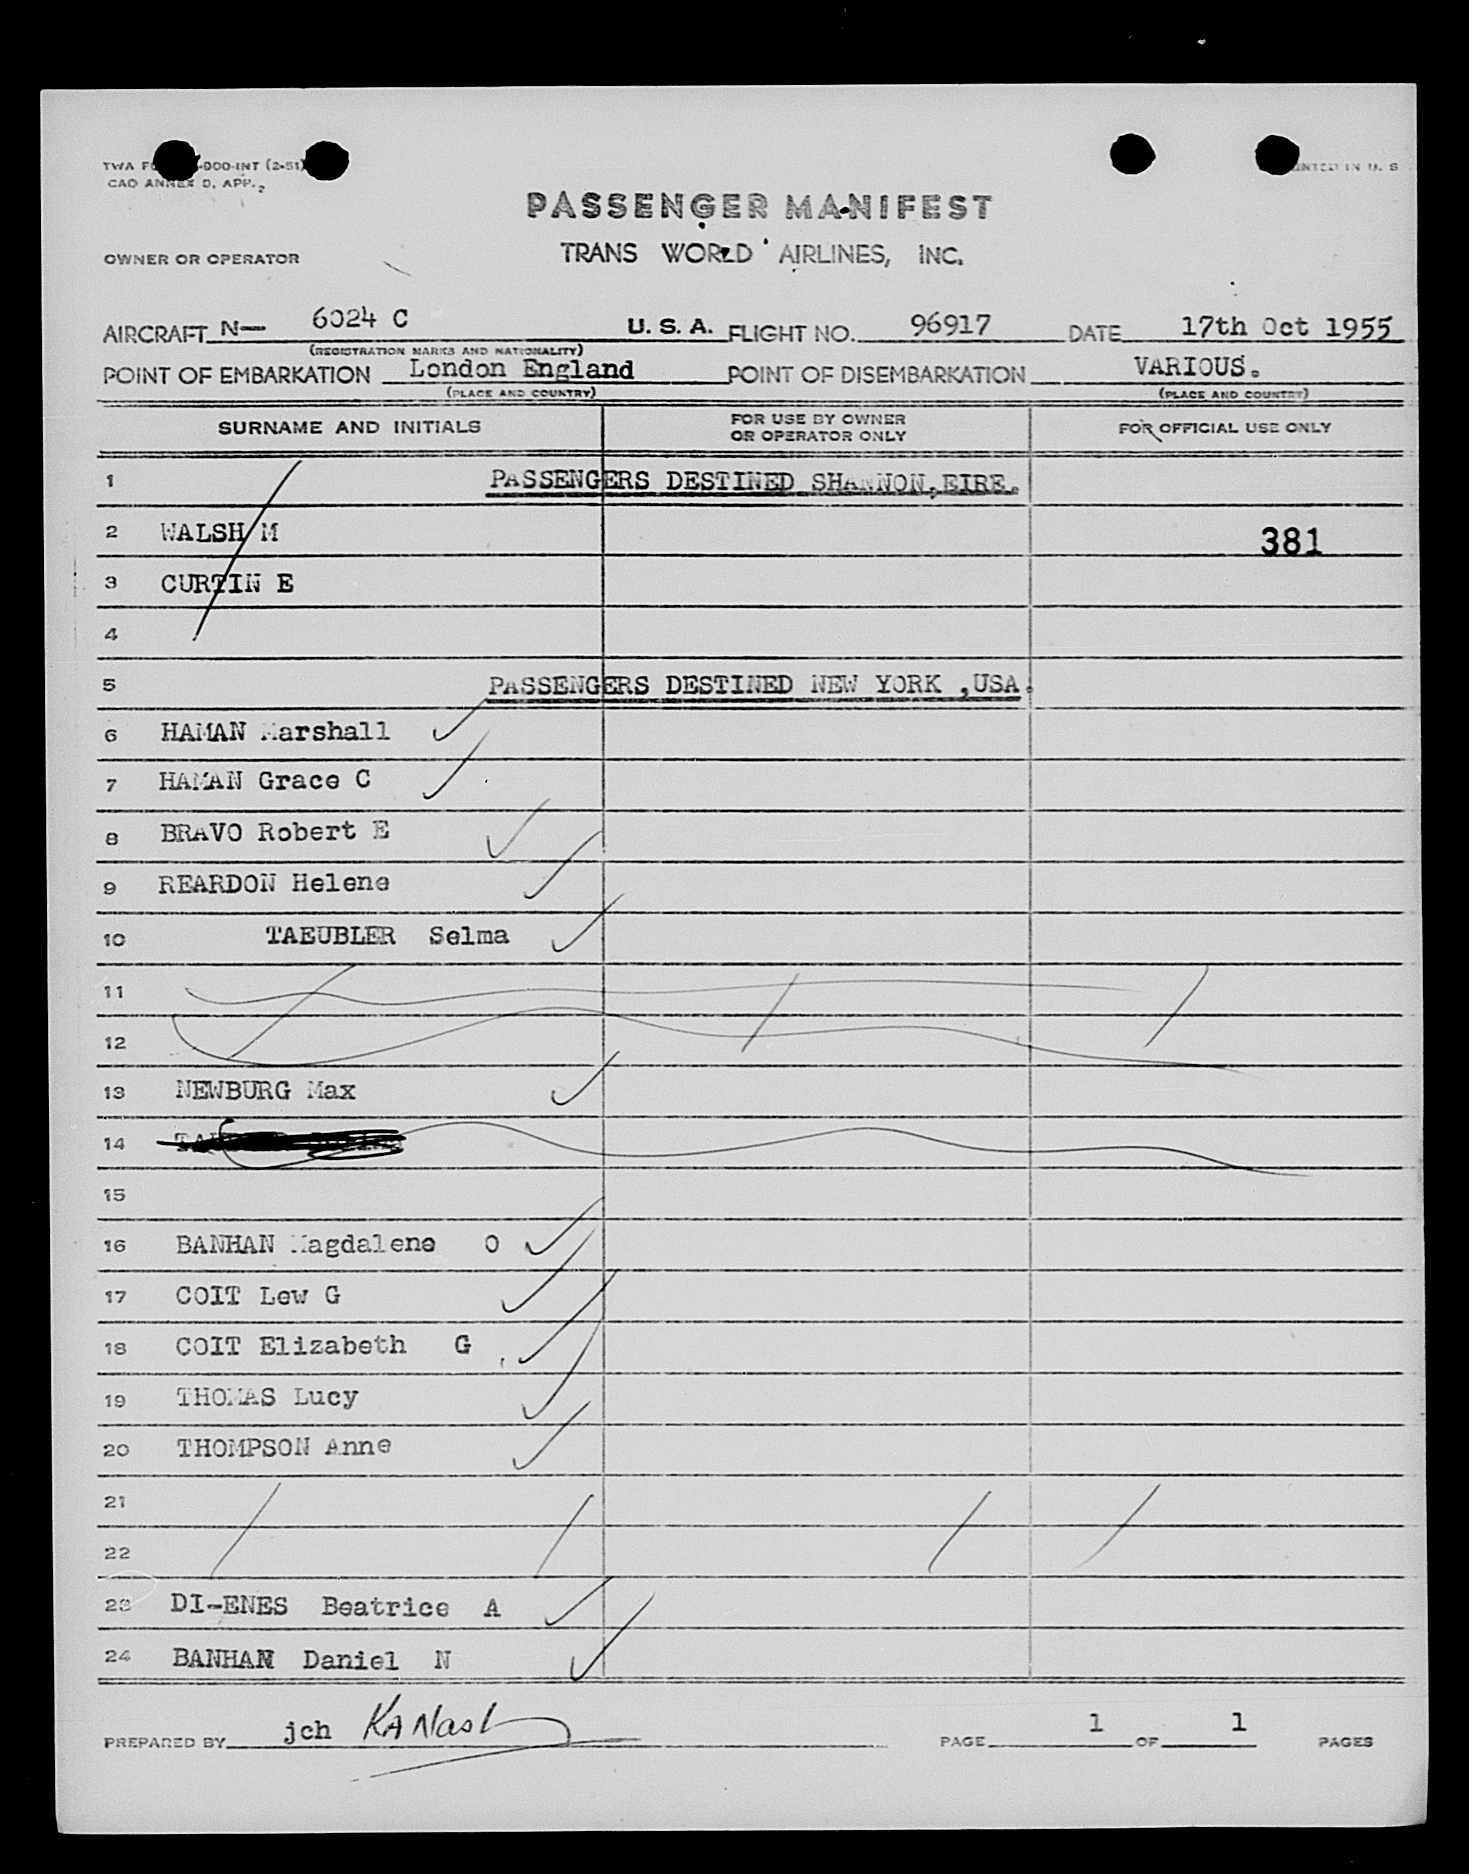 TWA
-000-INT (2-51)
CAO ANNEX D, APP. 2
PASSENGER MANIFEST
OWNER OR OPERATOR
TRANS WORLD AIRLINES, INC.
AIRCRAFT N— 6024 C U. S. A. FLIGHT NO. 96917 DATE 17th Oct 1955
(REGISTRATION MARKS AND NATIONALITY)
POINT OF EMBARKATION London England POINT OF DISEMBARKATION VARIOUS.
(PLACE AND COUNTRY) (PLACE AND COUNTRY)
SURNAME AND INITIALS FOR USE BY OWNER OR OPERATOR ONLY FOR OFFICIAL USE ONLY
1 PASSENGERS DESTINED SHANNON,EIRE.
2 WALSH M 381
3 CURTIN E
4
5 PASSENGERS DESTINED NEW YORK ,USA.
6 HAMAN Marshall
7 HAMAN Grace C
8 BRAVO Robert E
9 REARDON Helene
10 TAEUBLER Selma
11
12
13 NEWBURG Max
14
15
16 BANHAN Magdalene O
17 COIT Lew G
18 COIT Elizabeth G
19 THOMAS Lucy
20 THOMPSON Anne
21
22
23 DI-ENES Beatrice A
24 BANHAN Daniel N
PREPARED BY jch KANash PAGE 1 OF 1 PAGES